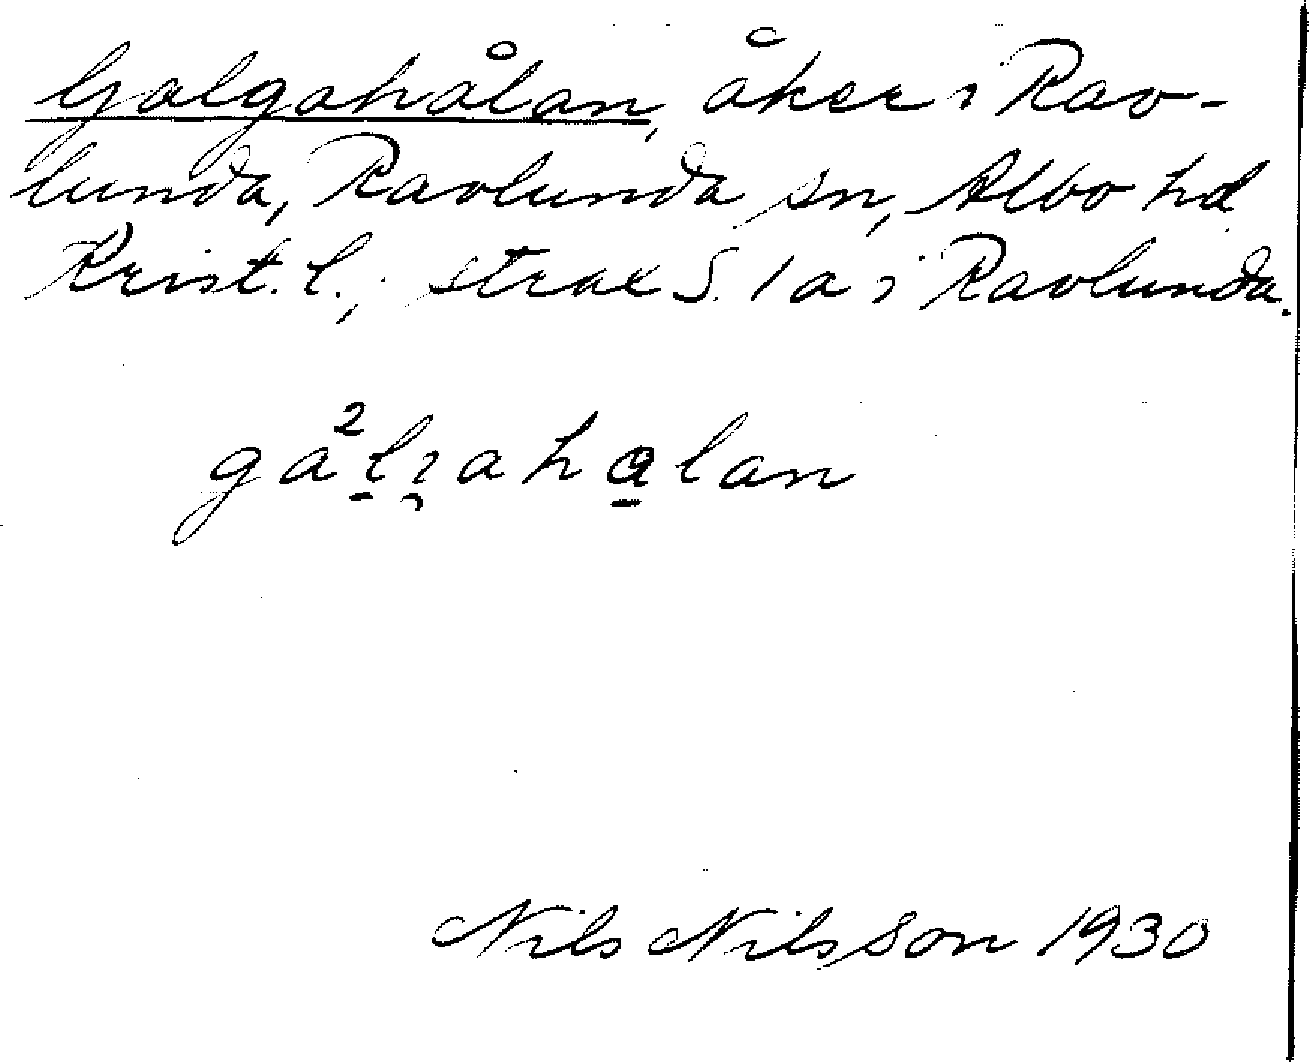 Galgahålan, åker i Rav-
lunda, Ravlunda sn, Albo hd
Krist. l.; strax S. 1a i Ravlunda.
ga²l̠i̯aha̠lan
Nils Nilsson 1930